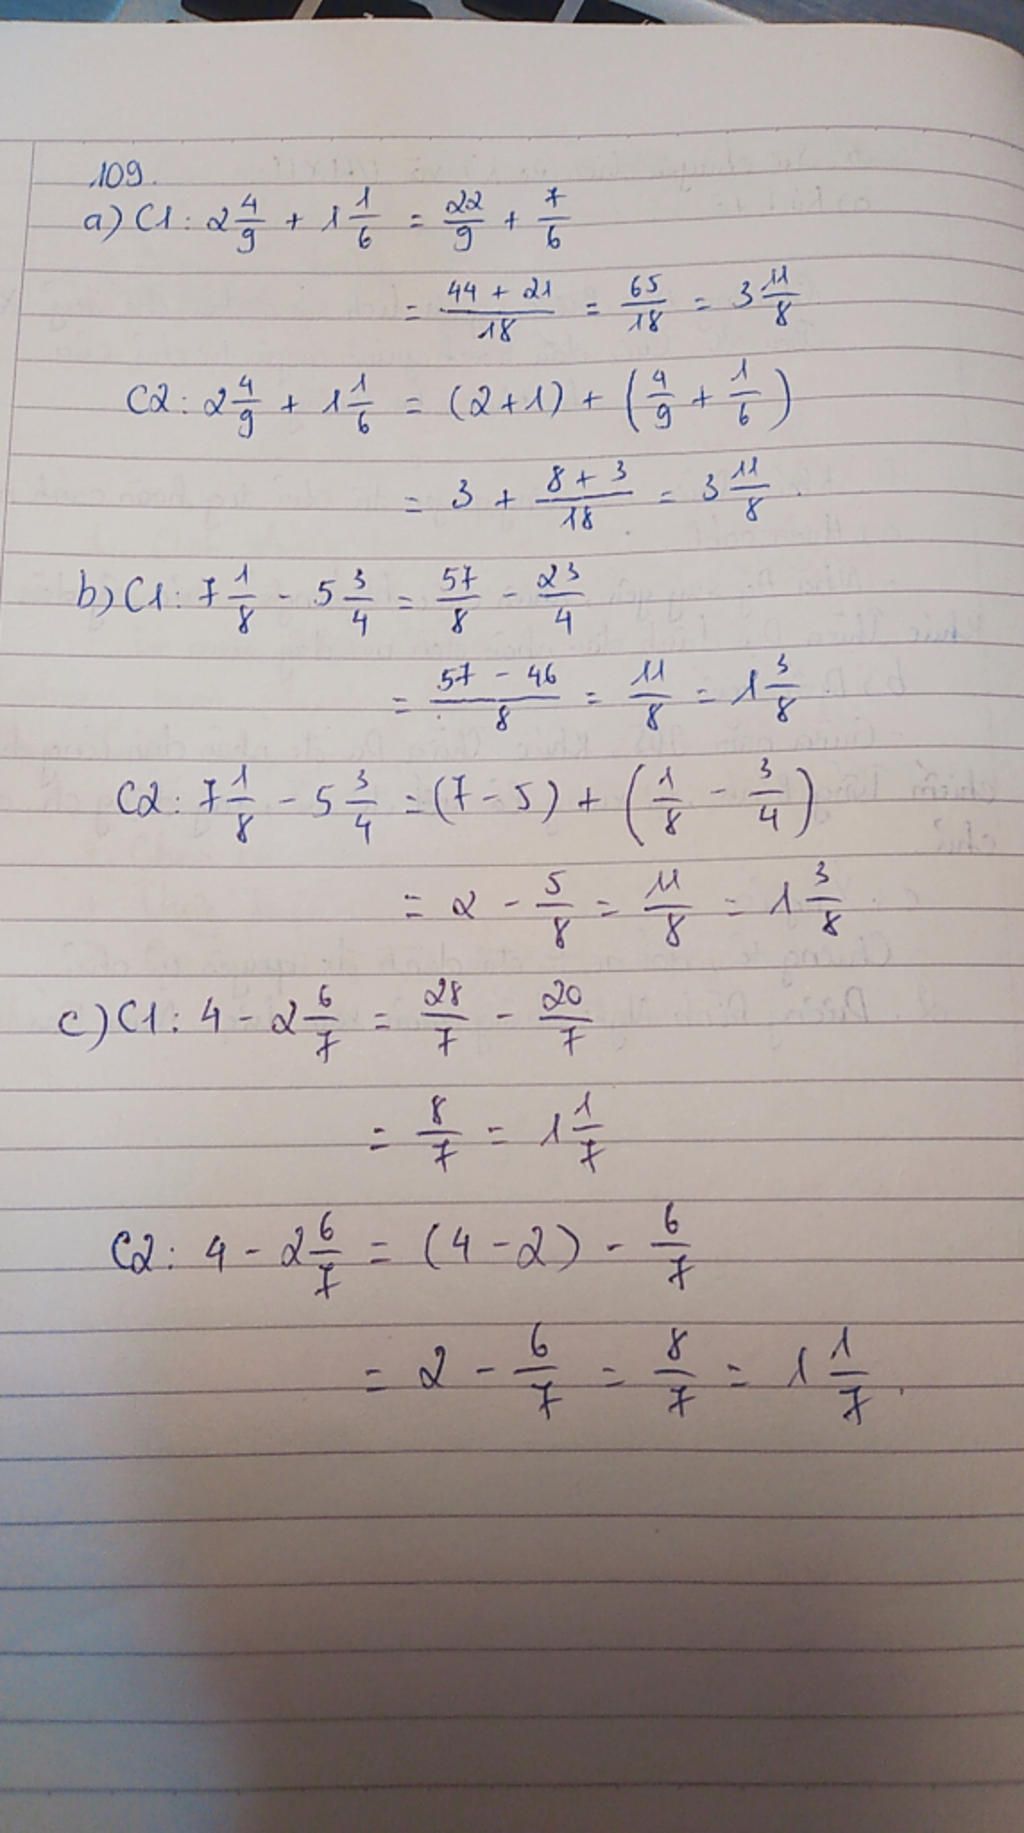 109.
a) C1: 2 4/9 + 1 1/6 = 22/9 + 7/6
= (44 + 21)/18 = 65/18 = 3 11/8
C2: 2 4/9 + 1 1/6 = (2+1) + (4/9 + 1/6)
= 3 + (8 + 3)/18 = 3 11/8.
b) C1: 7 1/8 - 5 3/4 = 57/8 - 23/4
= (57 - 46)/8 = 11/8 = 1 3/8
C2: 7 1/8 - 5 3/4 = (7 - 5) + (1/8 - 3/4)
= 2 - 5/8 = 11/8 = 1 3/8
c) C1: 4 - 2 6/7 = 28/7 - 20/7
= 8/7 = 1 1/7
C2: 4 - 2 6/7 = (4 - 2) - 6/7
= 2 - 6/7 = 8/7 = 1 1/7.